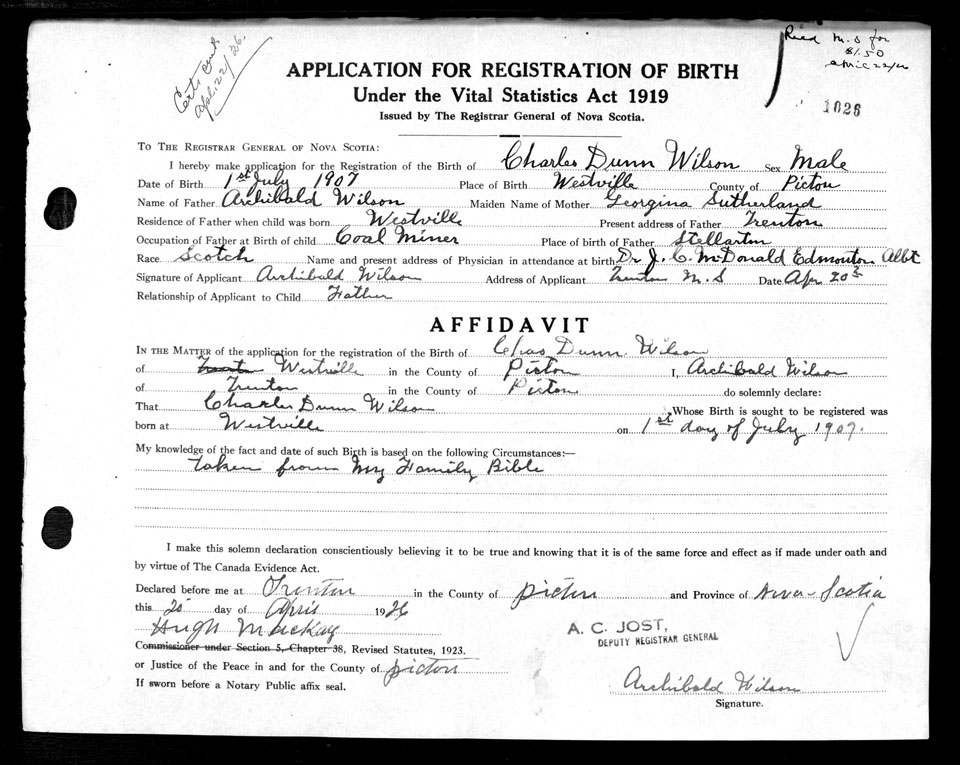 Certs sent
Apl. 22/26.
Recd M.S for
$1.50
April 22/26
1026
APPLICATION FOR REGISTRATION OF BIRTH
Under the Vital Statistics Act 1919
Issued by The Registrar General of Nova Scotia.
To The Registrar General of Nova Scotia:
I hereby make application for the Registration of the Birth of Charles Dunn Wilson Sex Male
Date of Birth 1st July 1907 Place of Birth Westville County of Pictou
Name of Father Archibald Wilson Maiden Name of Mother Georgina Sutherland
Residence of Father when child was born Westville Present address of Father Trenton
Occupation of Father at Birth of child Coal Miner Place of birth of Father Stellarton
Race Scotch Name and present address of Physician in attendance at birth Dr J. C. McDonald Edmonton Albt
Signature of Applicant Archibald Wilson Address of Applicant Trenton N.S Date Apr 20
Relationship of Applicant to Child Father
AFFIDAVIT
In the Matter of the application for the registration of the Birth of Chas Dunn Wilson
of Trenton Westville in the County of Pictou I, Archibald Wilson
of Trenton in the County of Pictou do solemnly declare:
That Charles Dunn Wilson Whose Birth is sought to be registered was
born at Westville on 1st day of July 1907.
My knowledge of the fact and date of such Birth is based on the following Circumstances:—
taken from My Family Bible
I make this solemn declaration conscientiously believing it to be true and knowing that it is of the same force and effect as if made under oath and
by virtue of The Canada Evidence Act.
Declared before me at Trenton in the County of Pictou and Province of Nova-Scotia
this 20 day of April 1926
Hugh Mackay
Commissioner under Section 5, Chapter 38, Revised Statutes, 1923.
or Justice of the Peace in and for the County of Pictou
If sworn before a Notary Public affix seal.
A. C. JOST,
DEPUTY REGISTRAR GENERAL
Archibald Wilson
Signature.